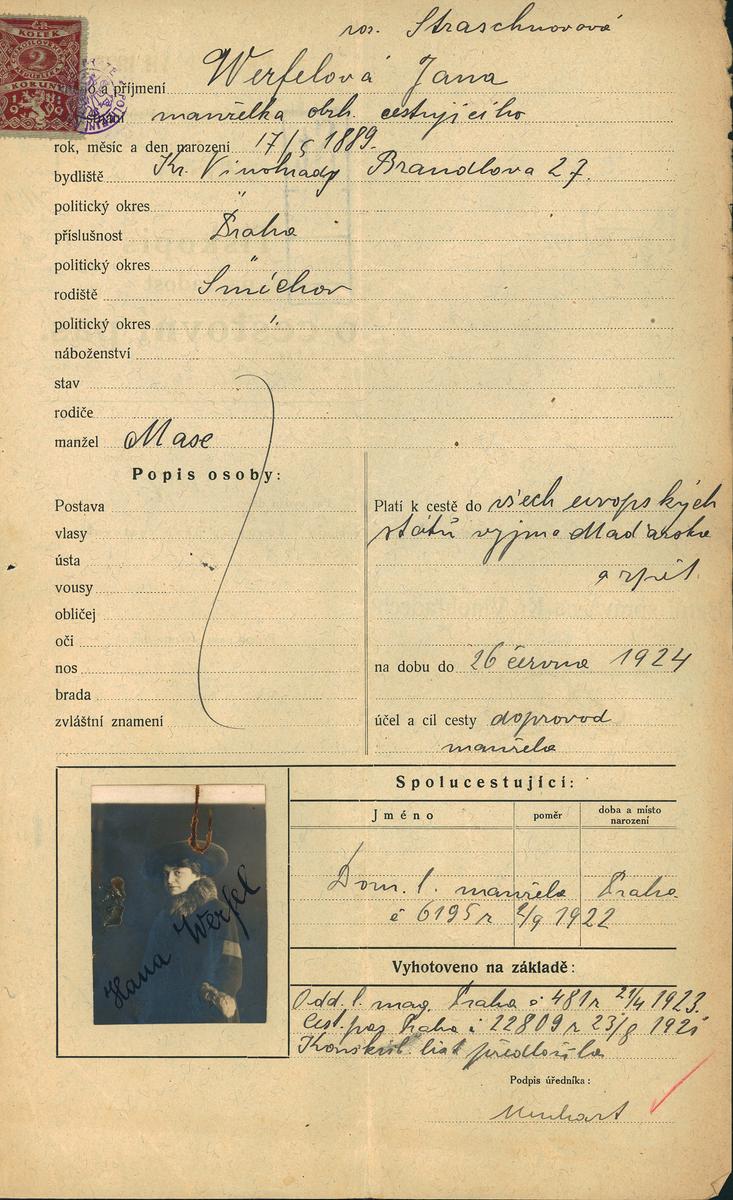 roz. Straschnovová
KOLEK
2
KORUNY
jméno a příjmení Werfelová Jana
manželka obch. cestujícího
rok, měsíc a den narození 17/5 1889.
bydliště Kr. Vinohrady Brandlova 27.
politický okres "
příslušnost Praha
politický okres "
rodiště Smíchov
politický okres "
náboženství
stav
rodiče
manžel Maxe
Popis osoby:
Postava
vlasy
ústa
vousy
obličej
oči
nos
brada
zvláštní znamení
Platí k cestě do všech evropských
států vyjma Maďarska
a zpět.
na dobu do 26 června 1924
účel a cíl cesty doprovod
manžela
Hana Werfel
Spolucestující:
Jméno poměr doba a místo narození
Dom. l. manžela Praha
č 6195 z 2/9 1922
Vyhotoveno na základě:
Odd. l. mag. Praha č 481 z 21/4 1923.
Cest. pas Praha č 22809 z 23/8 1921
Konskrib. list předložila
Podpis úředníka: